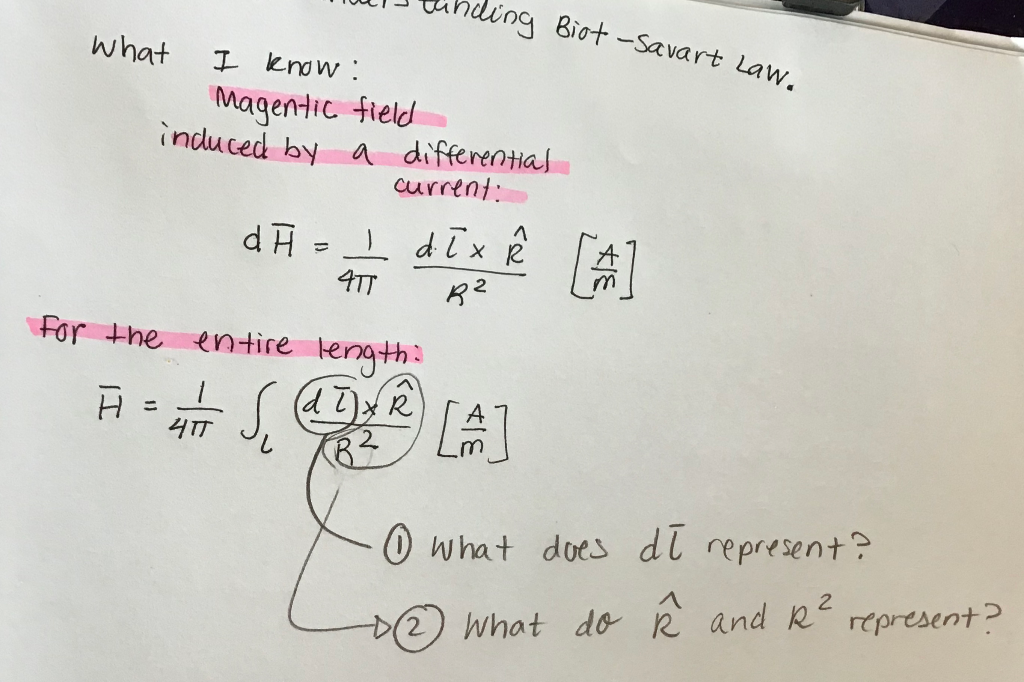 Biot-Savart Law.
What I know:
Magentic field
induced by a differential
current:
dH̅ = 1/4π dl̅ x R̂/R² [A/m]
For the entire length:
H̅ = 1/4π ∫L dl̅ x R̂/R² [A/m]
① What does dl̅ represent?
② What do R̂ and R² represent?